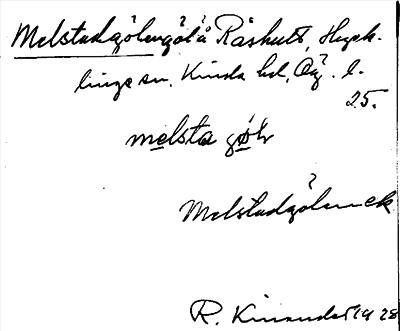 Melstadgölen göl å Råshult, Hyck-
linge sn, Kinda hd, Ög. l.
25.
melsta gøl
Melstadgölen ek
R. Kinander 1928